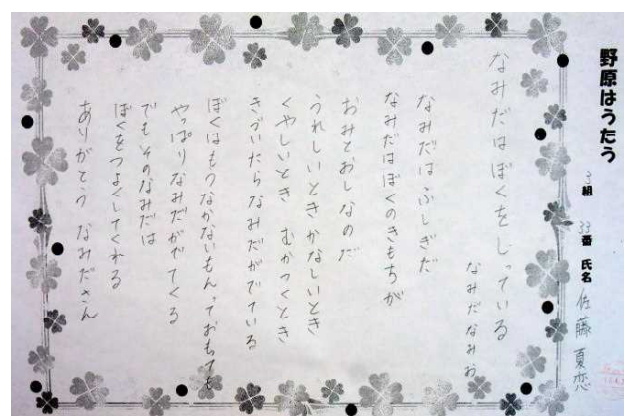 野原はうたう
3組 33番 氏名 佐藤 夏恋
なみだはぼくをしっている
なみだなみお
なみだはふしぎだ
なみだはぼくのきもちが
おみとおしなのだ
うれしいとき かなしいとき
くやしいとき むかつくとき
きづいたらなみだがでている
ぼくはもうなかないもんっておもっても
やっぱりなみだがでてくる
でもそのなみだは
ぼくをつよくしてくれる
ありがとう なみださん